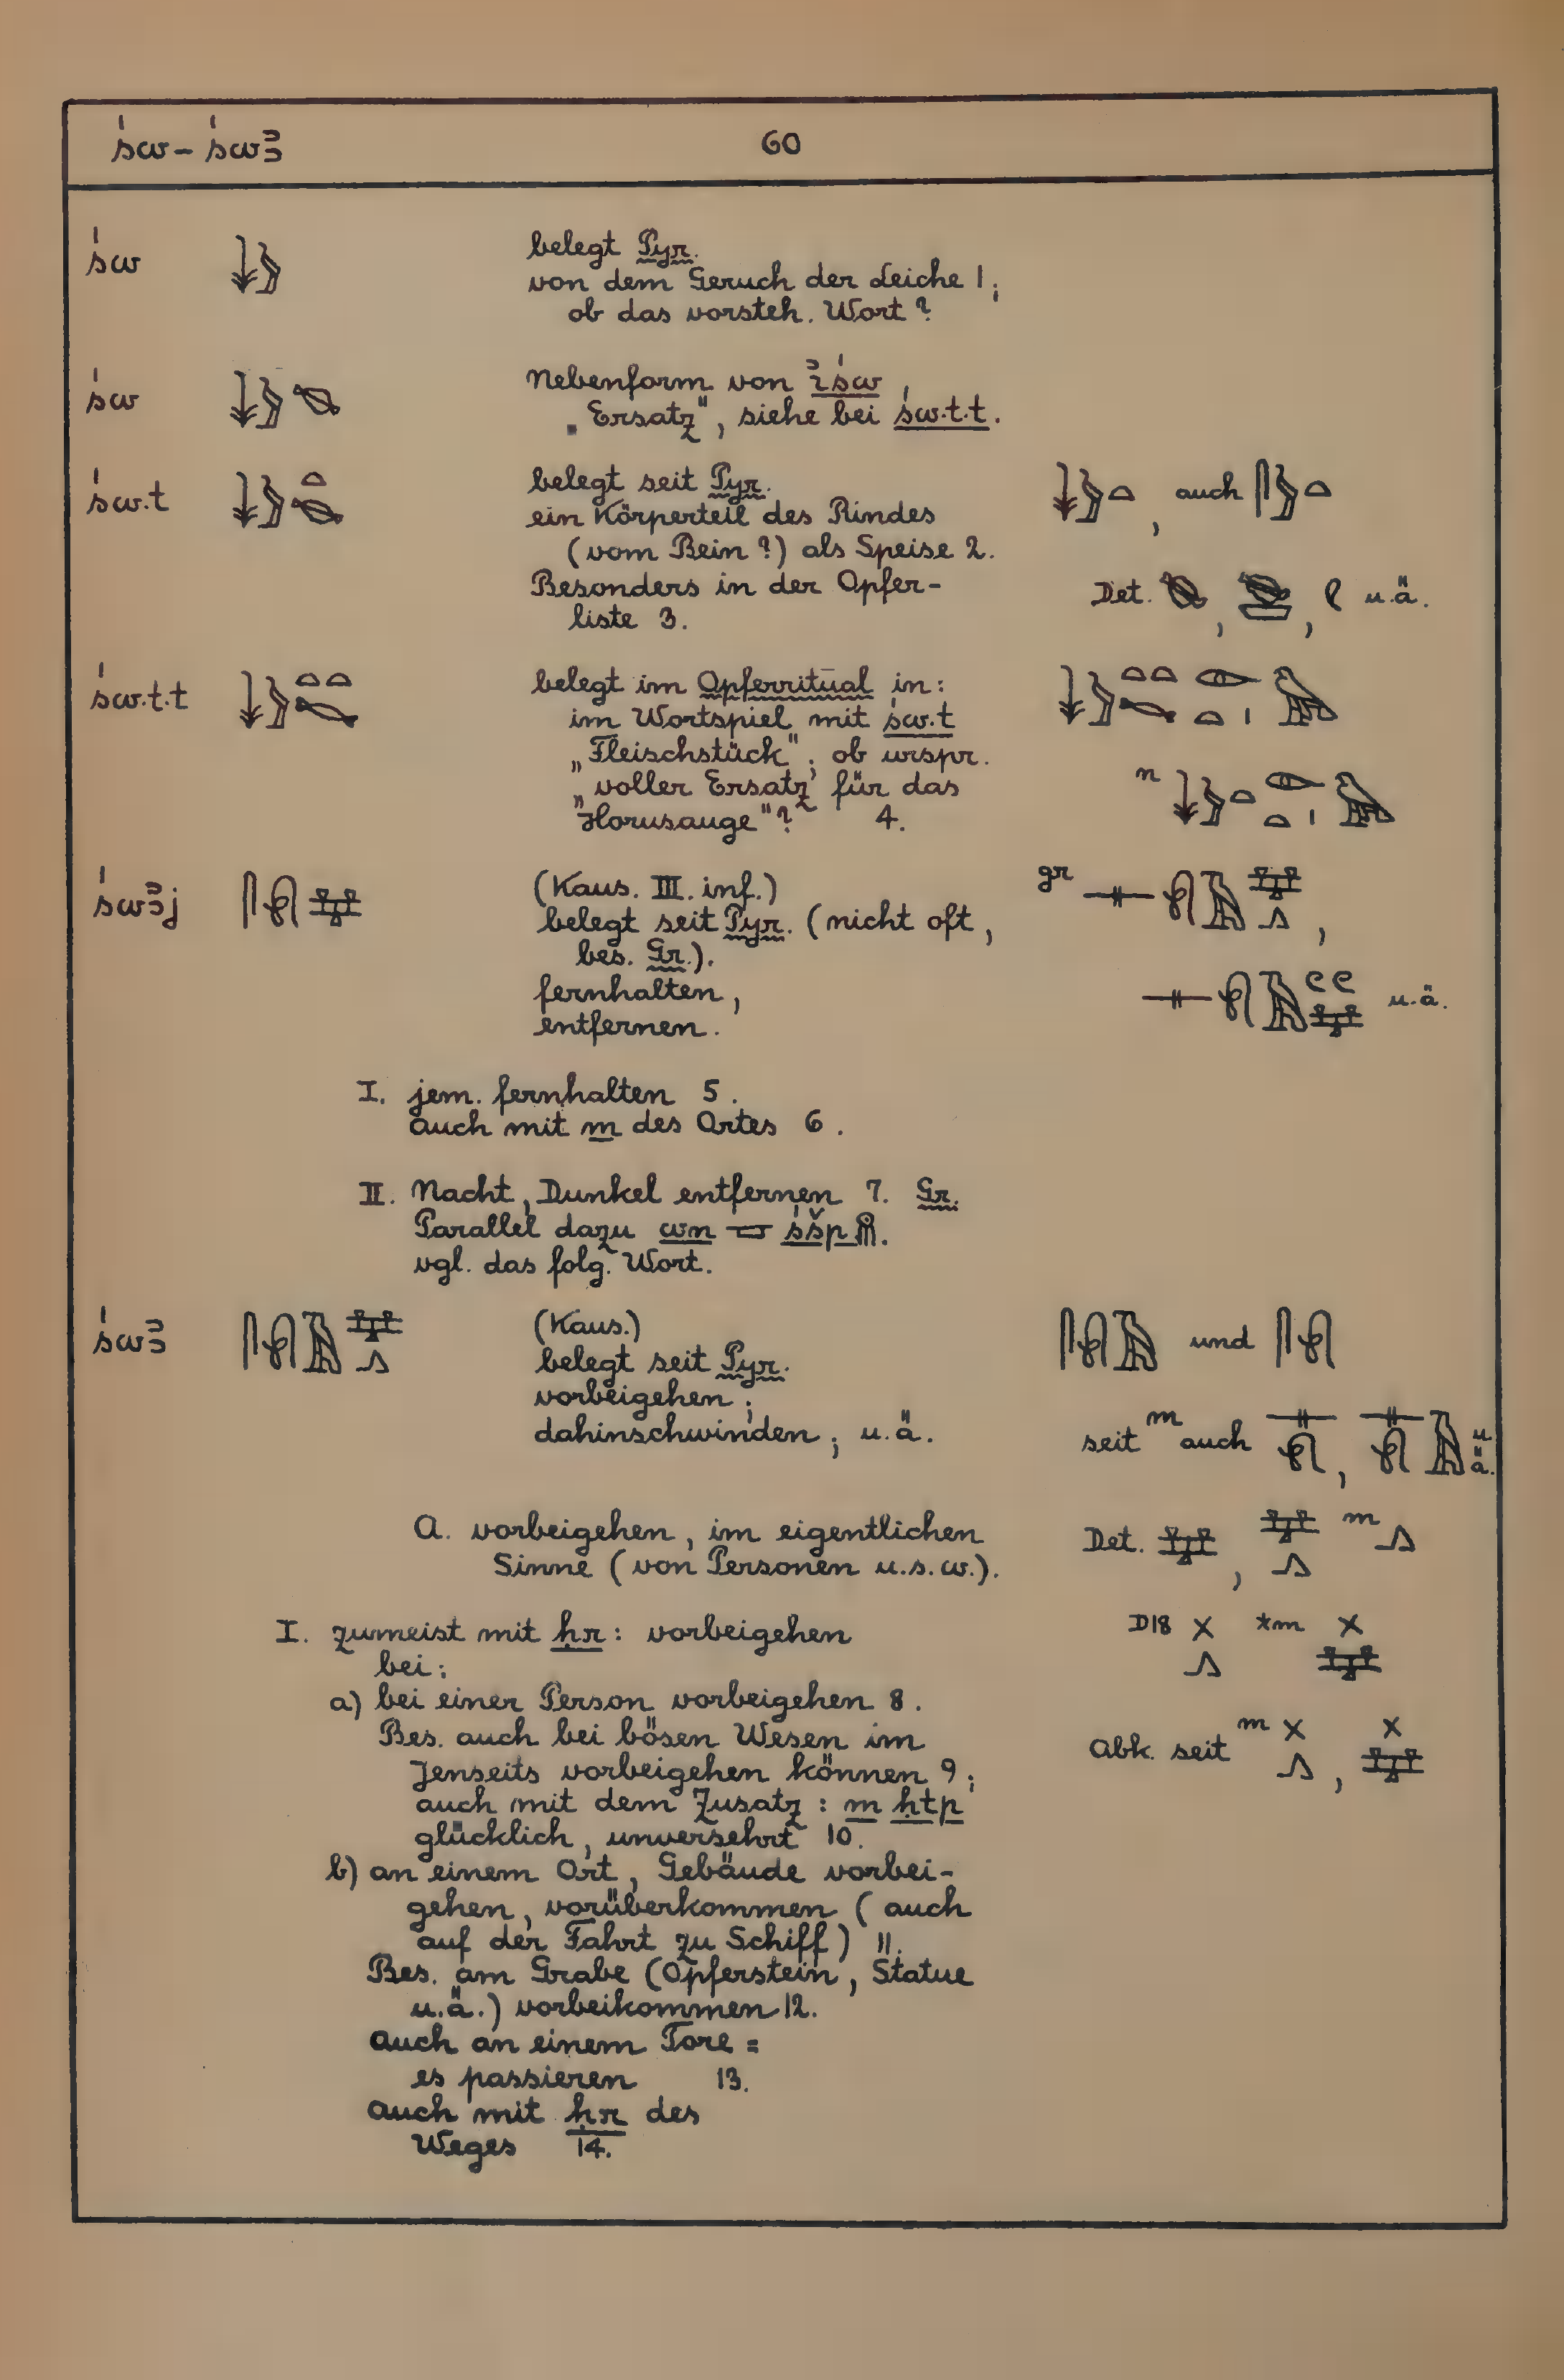 św – św3 60
św
belegt Pyr.
von dem Geruch der Leiche 1;
ob das vorsteh. Wort?
św
Nebenform von iśw,
„Ersatz", siehe bei św.t.t.
św.t
belegt seit Pyr.
ein Körperteil des Rindes
(vom Bein?) als Speise 2.
Besonders in der Opfer-
liste 3.
, auch
Det. , , u.ä.
św.t.t
belegt im Opferritual in:
im Wortspiel mit św.t
„Fleischstück"; ob urspr.
„voller Ersatz für das
Horusauge"? 4.
n
św3j
(Kaus. III. inf.)
belegt seit Pyr. (nicht oft,
bes. Gr.).
fernhalten,
entfernen.
gr ,
u.ä.
I. jem. fernhalten 5.
auch mit m des Ortes 6.
II. Nacht, Dunkel entfernen 7. Gr.
Parallel dazu wn śšp.
vgl. das folg. Wort.
św3
(Kaus.)
belegt seit Pyr.
vorbeigehen;
dahinschwinden; u.ä.
und
seit m auch , u. ä.
A. vorbeigehen, im eigentlichen
Sinne (von Personen u.s.w.).
Det. , m
I. zumeist mit ḥr: vorbeigehen
bei:
a) bei einer Person vorbeigehen 8.
Bes. auch bei bösen Wesen im
Jenseits vorbeigehen können 9;
auch mit dem Zusatz: m ḥtp
glücklich, unversehrt 10.
b) an einem Ort, Gebäude vorbei-
gehen, vorüberkommen (auch
auf der Fahrt zu Schiff) 11.
Bes. am Grabe (Opferstein, Statue
u.ä.) vorbeikommen 12.
auch an einem Tore =
es passieren 13.
auch mit ḥr des
Weges 14.
D18 *m
Abk. seit m ,